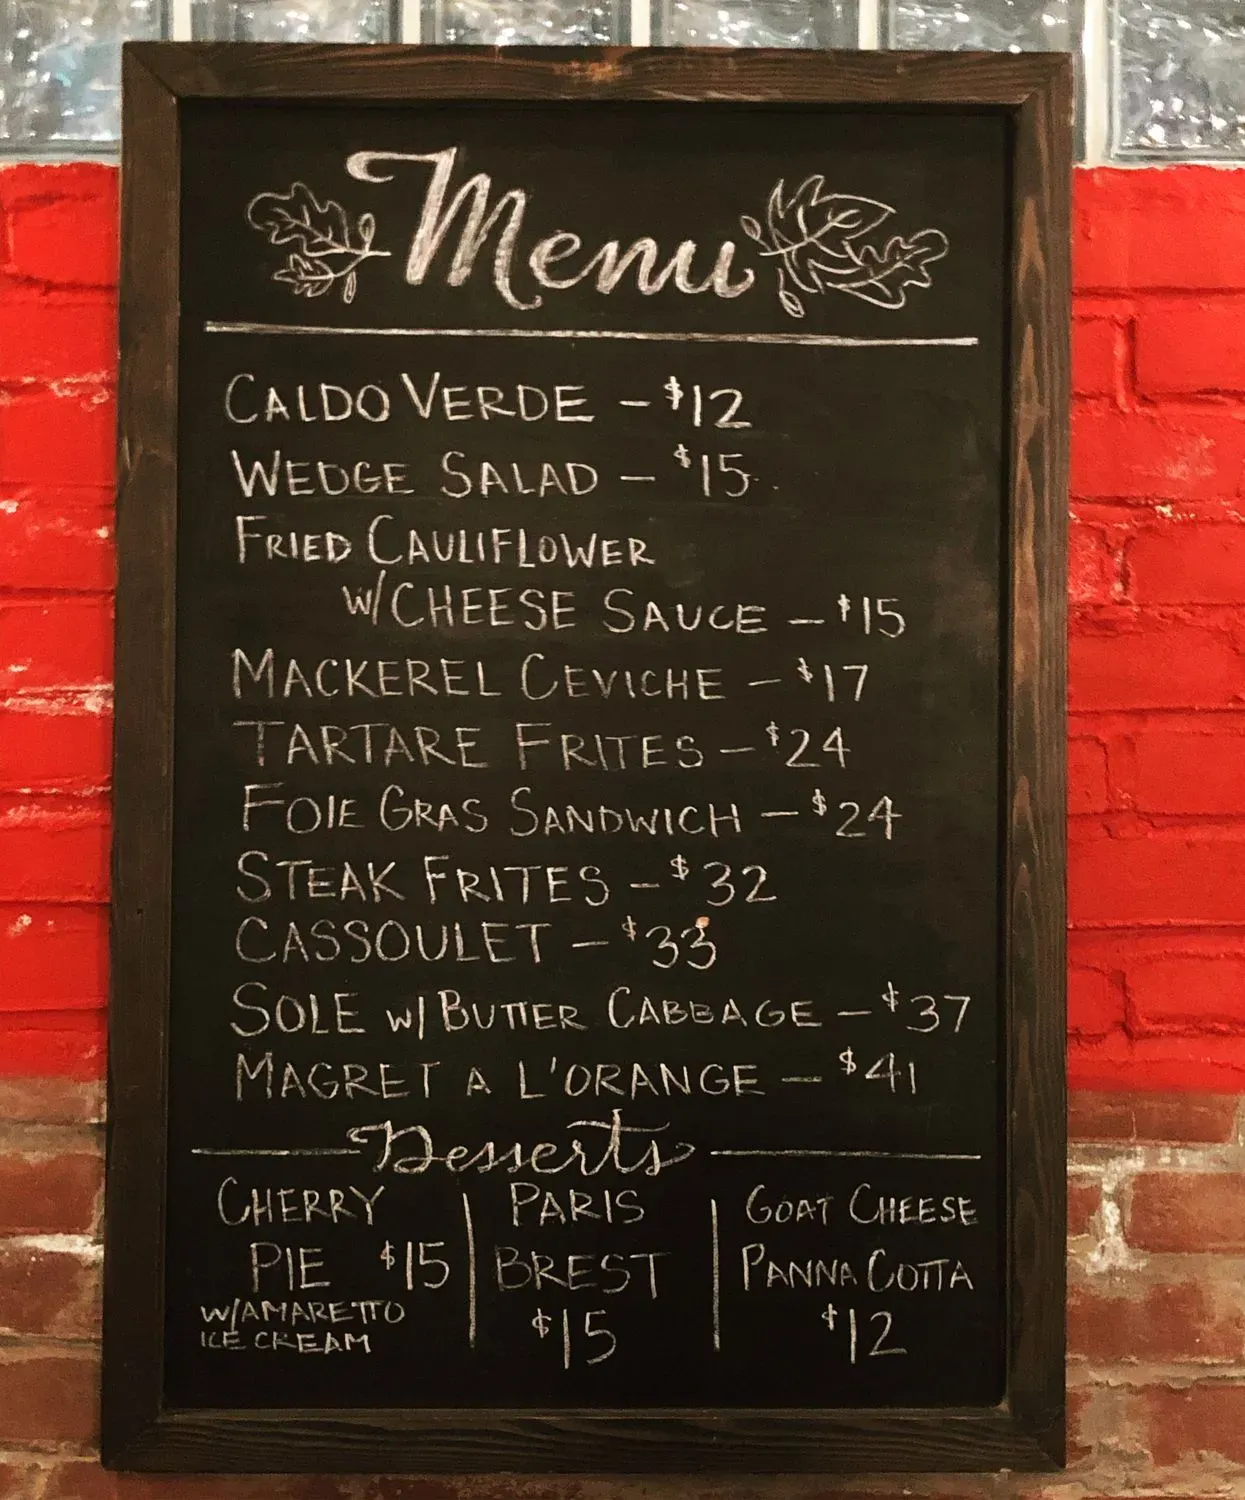 Menu
CALDO VERDE – $12
WEDGE SALAD – $15
FRIED CAULIFLOWER
W/CHEESE SAUCE – $15
MACKEREL CEVICHE – $17
TARTARE FRITES – $24
FOIE GRAS SANDWICH – $24
STEAK FRITES – $32
CASSOULET – $33
SOLE W/ BUTTER CABBAGE – $37
MAGRET A L'ORANGE – $41
Desserts
CHERRY
PIE $15
W/AMARETTO
ICE CREAM
PARIS
BREST
$15
GOAT CHEESE
PANNA COTTA
$12